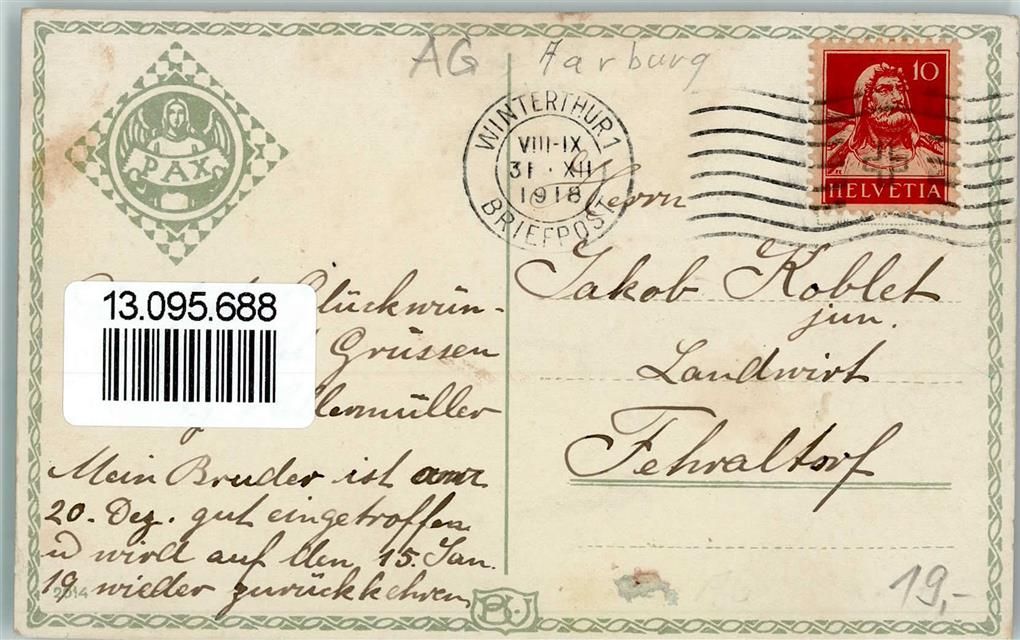 AG Aarburg
PAX
WINTERTHUR 1
VIII-IX
31 · XII
1918
BRIEFPOST
10
HELVETIA
Herrn
Jakob Koblet
jun.
Landwirt
Fehraltorf
13.095.688
Glückwün-
Grüssen
Mein Bruder ist am
20. Dez. gut eingetroffen
u wird auf den 15. Jan.
19 wieder zurückkehren
2014
19,-